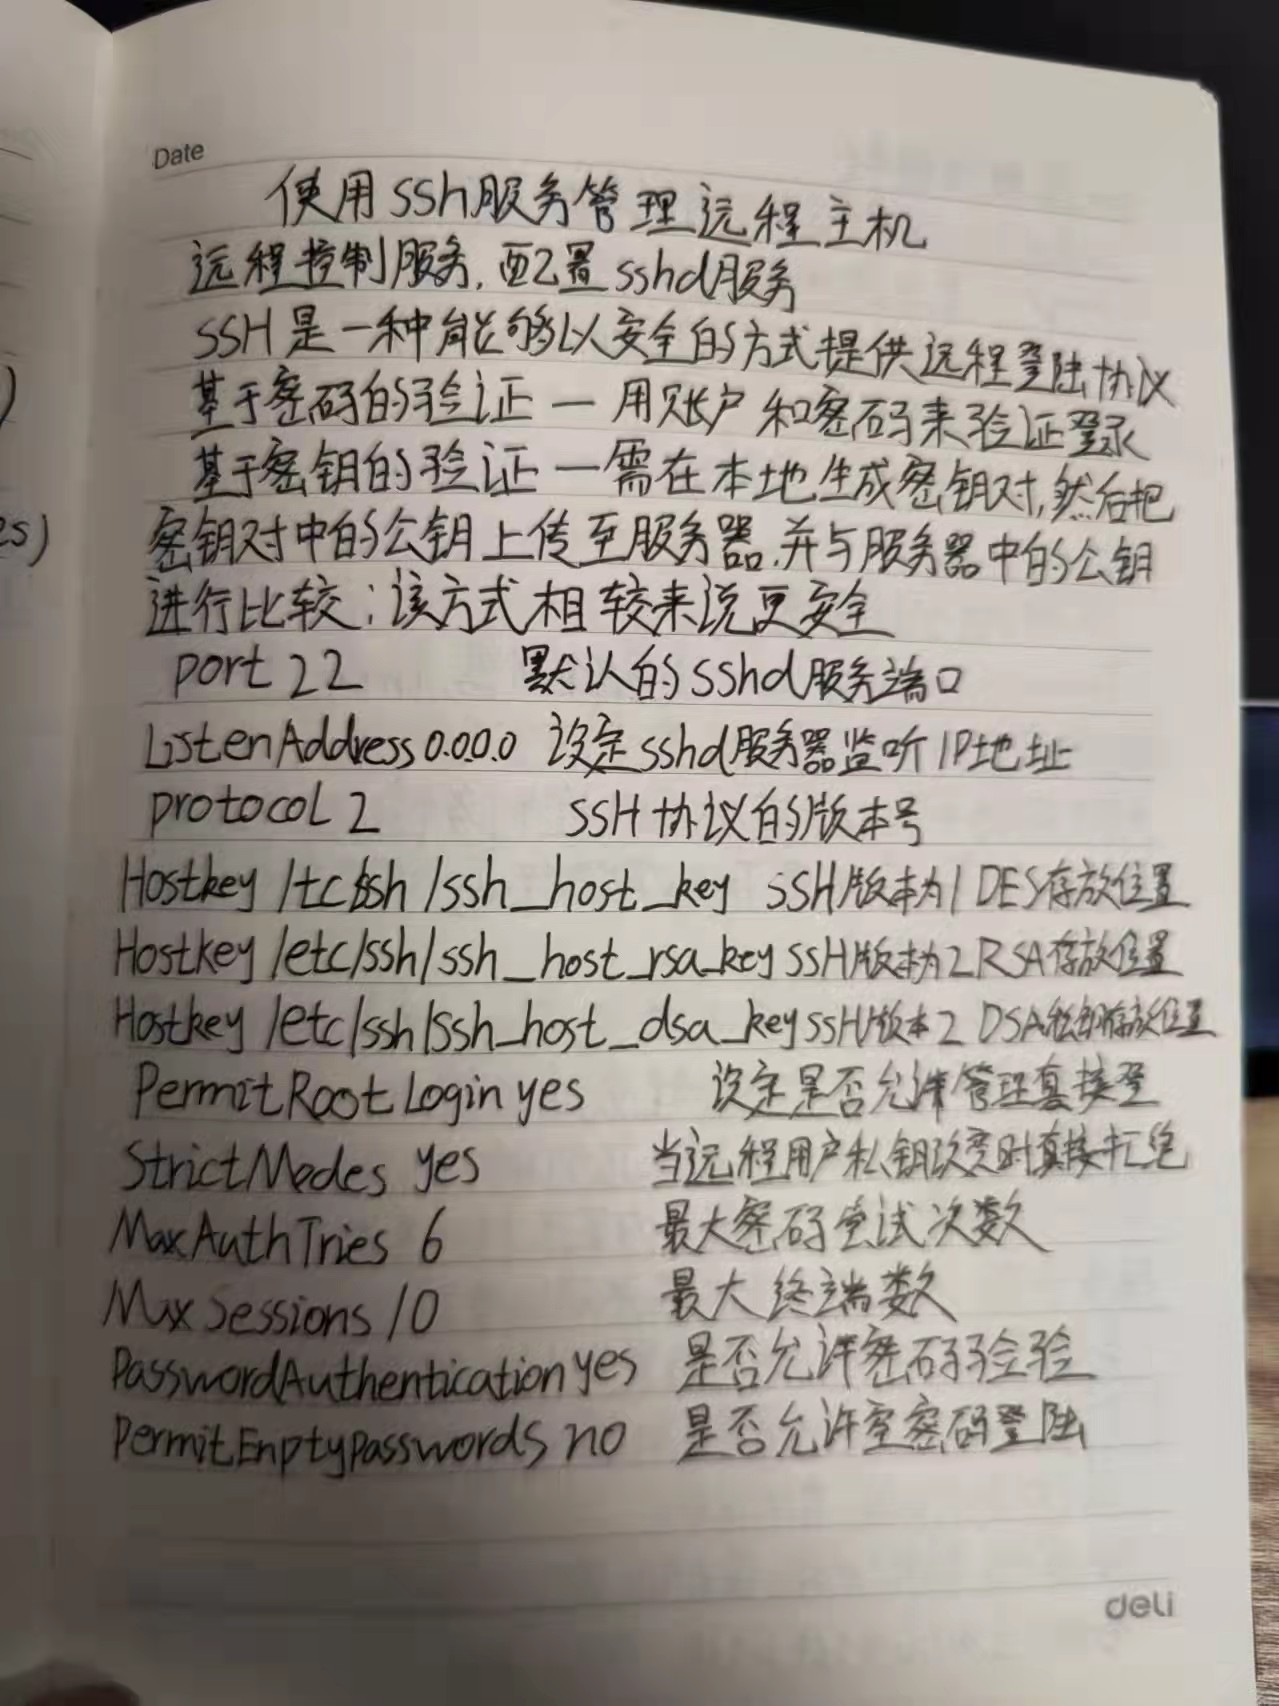 Date
使用ssh服务管理远程主机
远程控制服务,配置sshd服务
SSH是一种能够以安全的方式提供远程登陆协议
基于密码的验证一用账户和密码来验证登录
基于密钥的验证一需在本地生成密钥对,然后把
密钥对中的公钥上传至服务器,并与服务器中的公钥
进行比较;该方式相较来说更安全
port 22 默认的sshd服务端口
ListenAddress 0.0.0.0 设定sshd服务器监听IP地址
protocol 2 SSH协议的版本号
Hostkey /tc/ssh/ssh_host_key SSH版本为1 DES存放位置
Hostkey /etc/ssh/ssh_host_rsa_key SSH版本为2 RSA存放位置
Hostkey /etc/ssh/ssh_host_dsa_key SSH版本2 DSA私钥存放位置
PermitRootLogin yes 设定是否允许管理直接登
StrictModes yes 当远程用户私钥改变时直接拒绝
MaxAuthTries 6 最大密码尝试次数
MaxSessions 10 最大终端数
PasswordAuthentication yes 是否允许密码验验
PermitEnptyPasswords no 是否允许空密码登陆
deli
es)